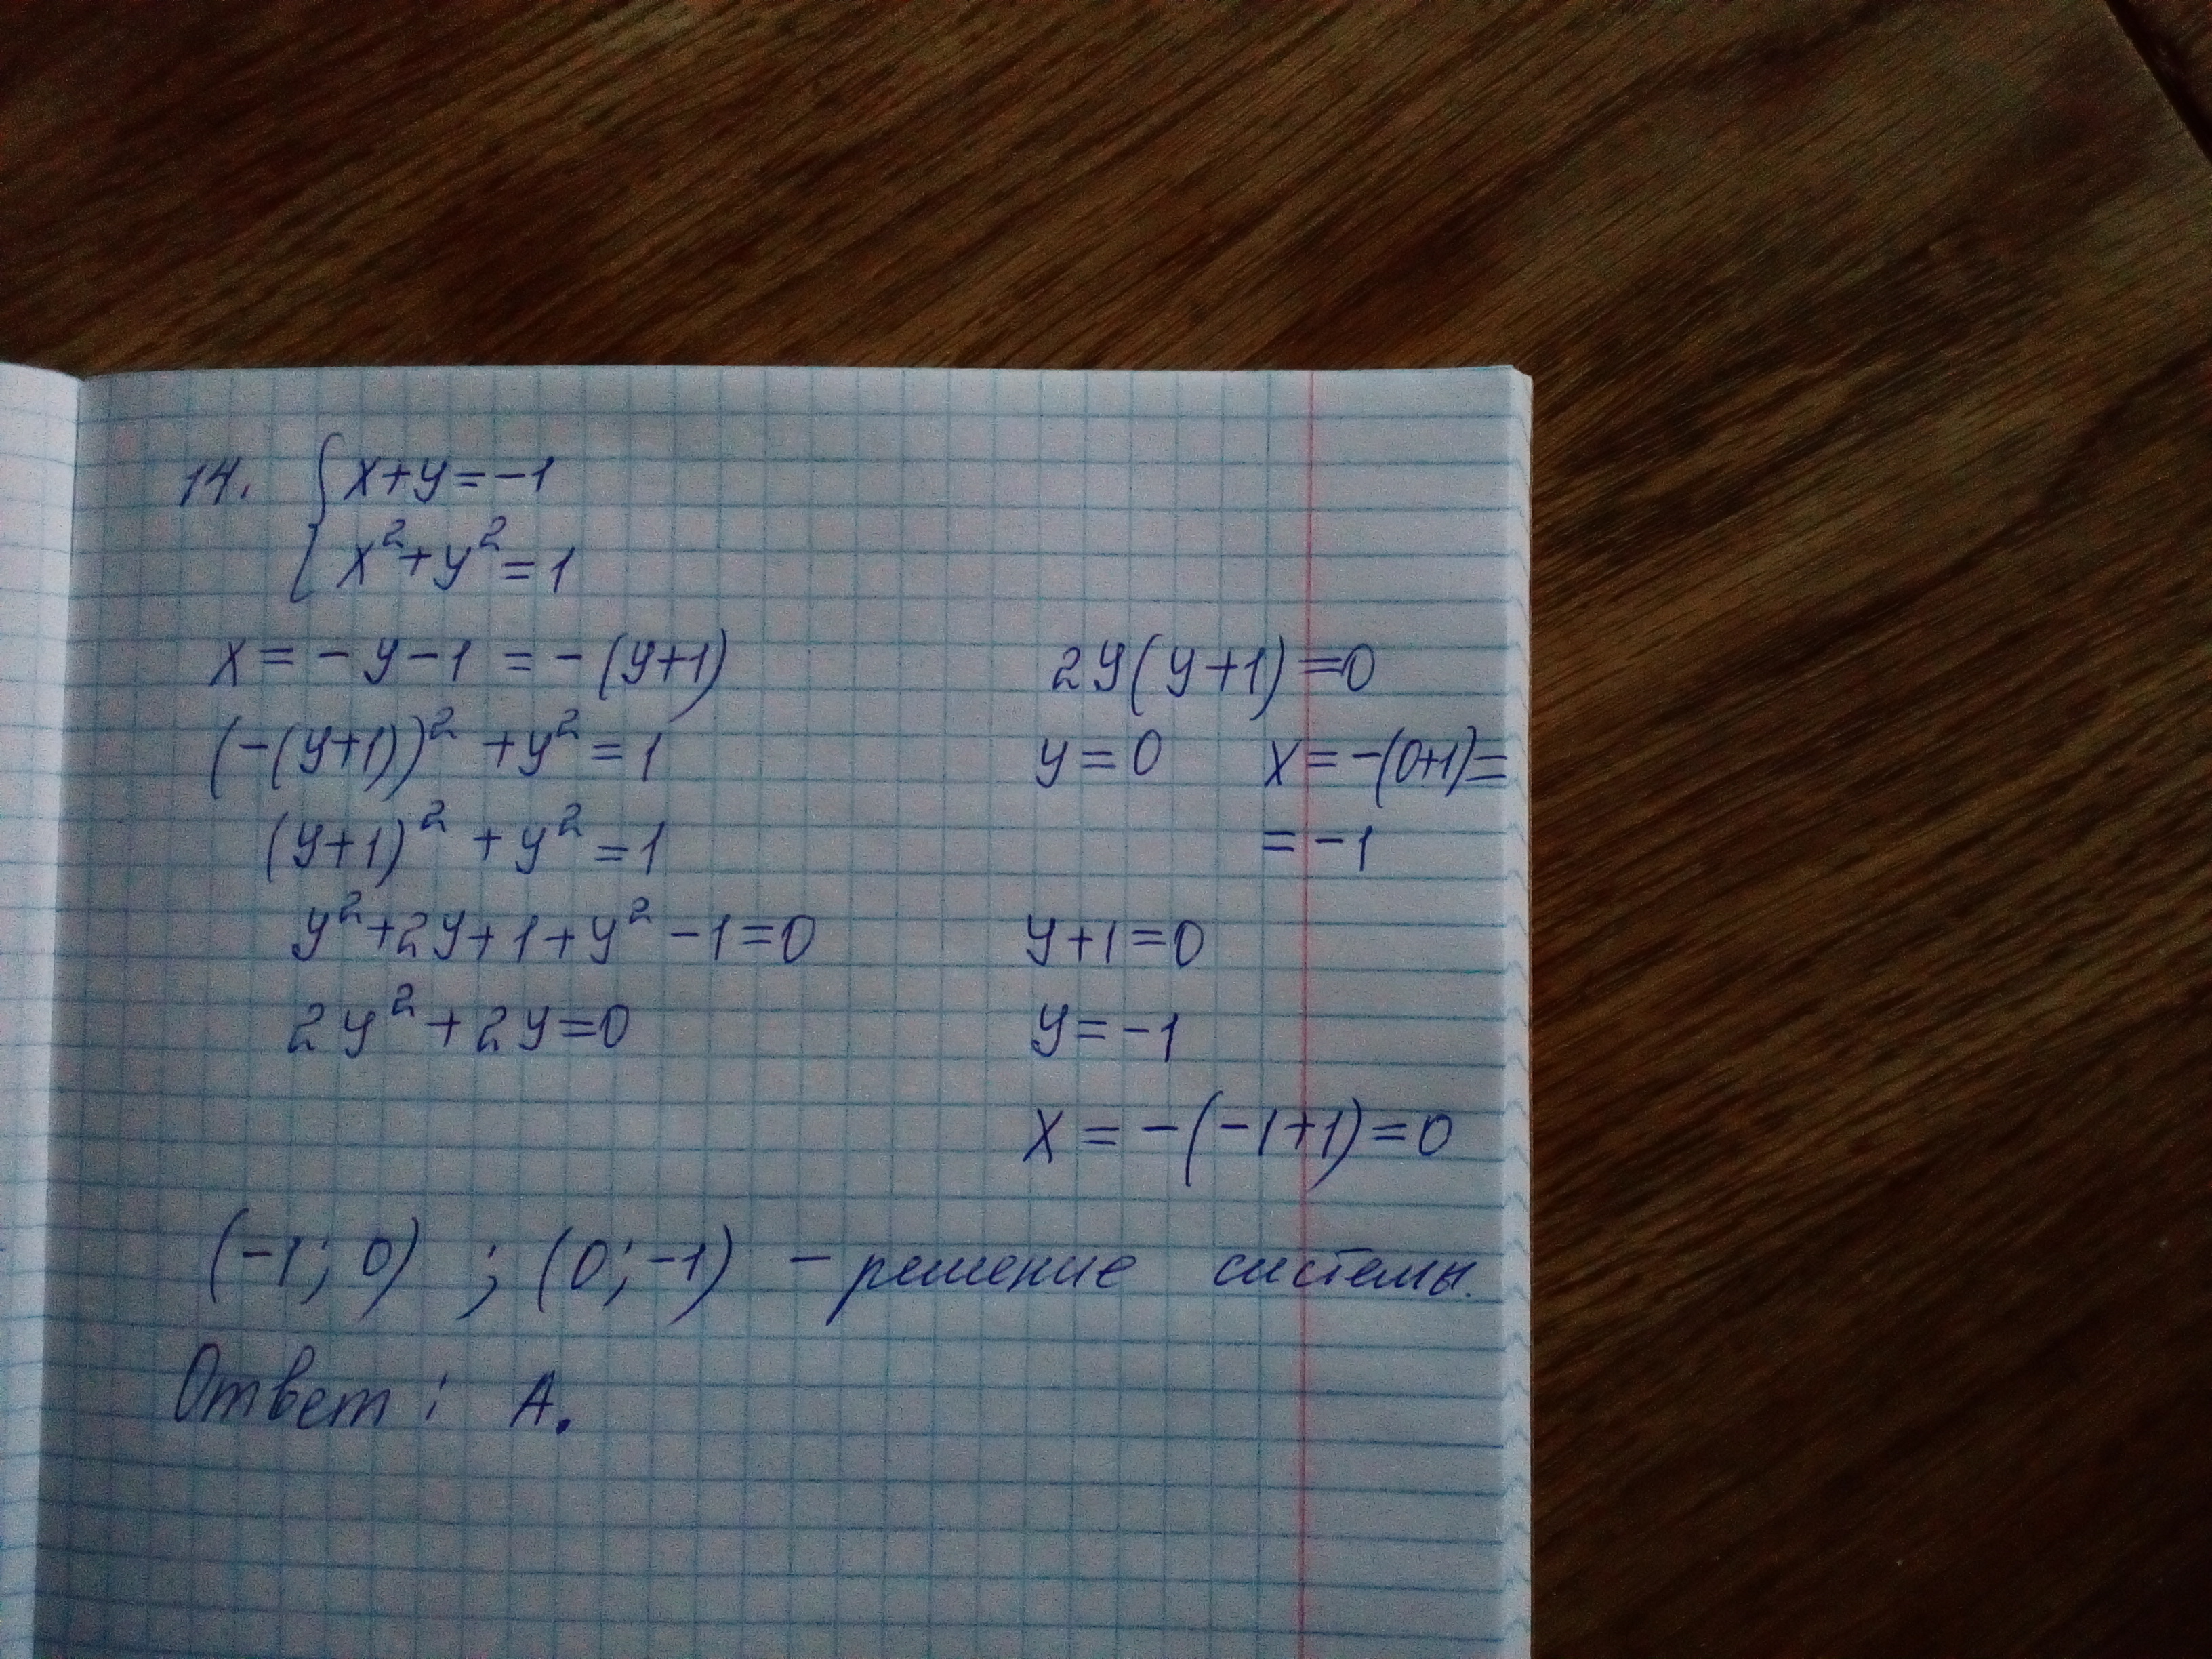 14. { x+y=-1
x²+y²=1
x=-y-1=-(y+1)
(-(y+1))²+y²=1
(y+1)²+y²=1
y²+2y+1+y²-1=0
2y²+2y=0
2y(y+1)=0
y=0 x=-(0+1)=
=-1
y+1=0
y=-1
x=-(-1+1)=0
(-1; 0) ; (0; -1) - решение системы.
Ответ: А.